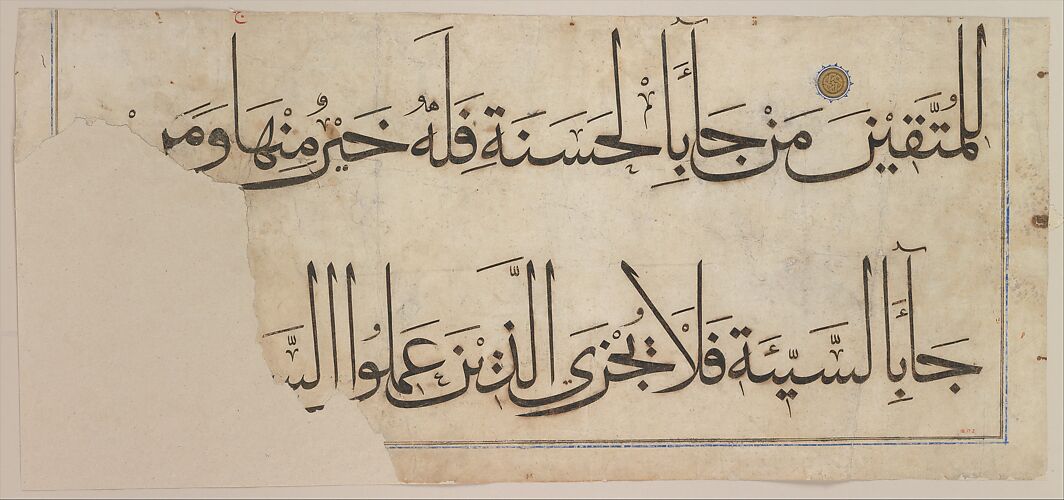 لِلْمُتَّقِيْنَ مَنْ جَآءَ بِالْحَسَنَةِ فَلَهُ خَيْرٌ مِنْهَا وَمَنْ
جَآءَ بِالسَّيِّئَةِ فَلَا يُجْزَى الَّذِيْنَ عَمِلُوا السَّ